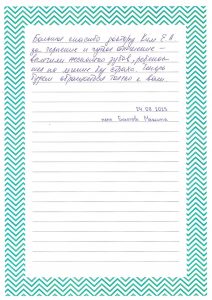 Большое спасибо доктору Ким Е.А.
за терпение и чуткое отношение –
вылечили несколько зубов, ребенок
шел на лечение без страха. Теперь
будем обращаться только к вам.
24.03.2025
папа Максима